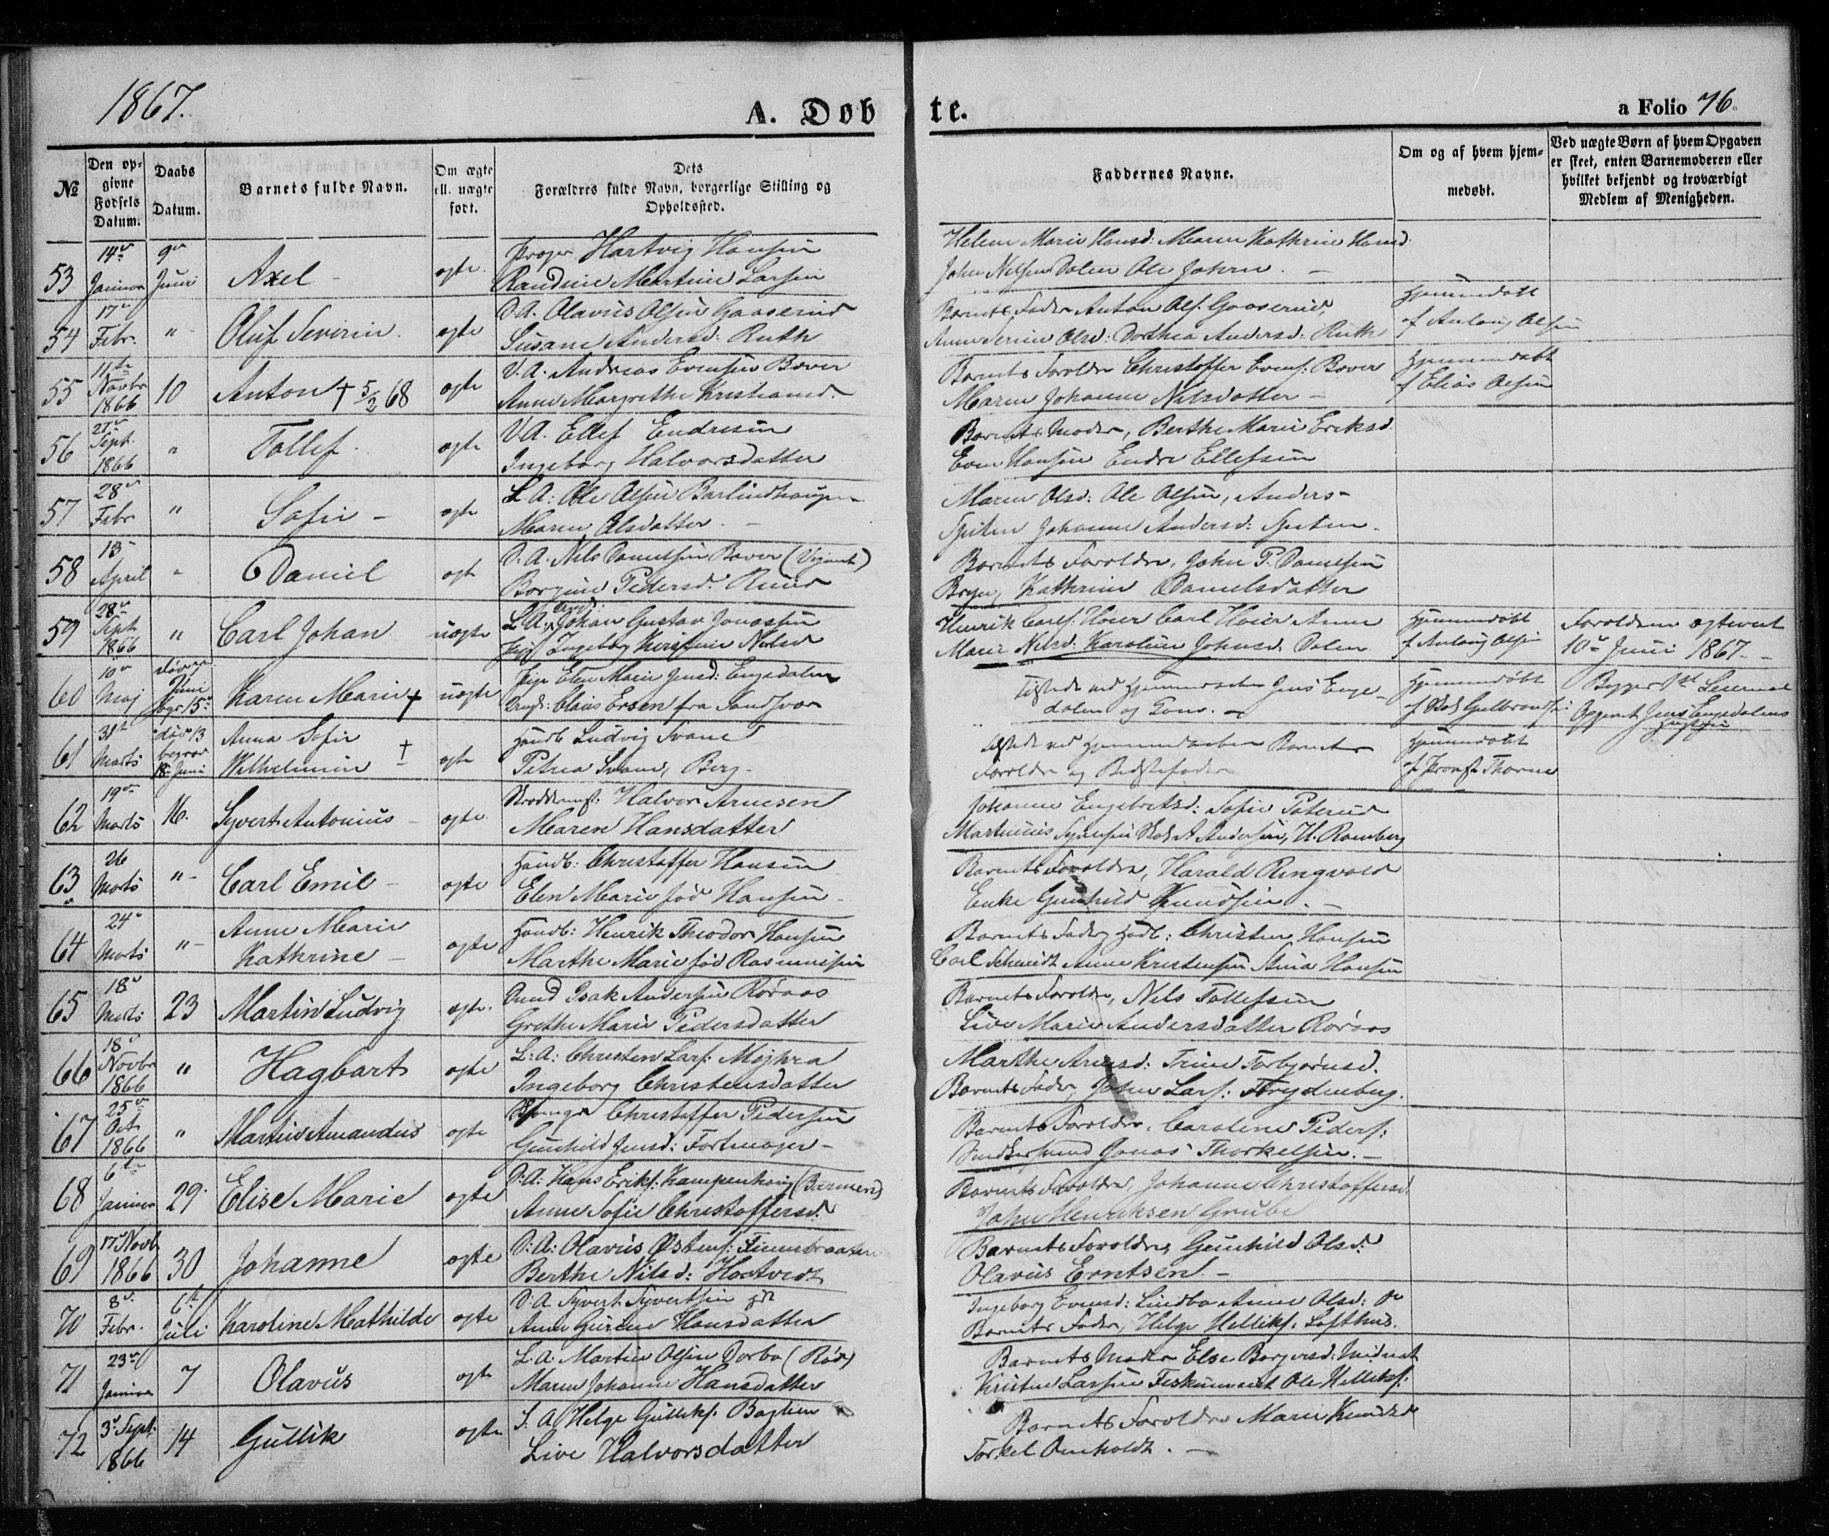 1867.
A. Døbte.
a Folio 76.
№
Den opgivne Fødsels Datum.
Daabs Datum.
Barnets fulde Navn.
Om ægte ell. uægte født.
Dets Forældres fulde Navn, borgerlige Stilling og Opholdssted.
Faddernes Navne.
Om og af hvem hjemmedøbt.
Ved uægte Børn af hvem Opgaven er skeet, enten Barnemoderen eller hvilket bekjendt og troværdigt Medlem af Menigheden.
53 14de Januar 9de Juni Axel - ægte Hartvig Hansen
Randine Martine Larsen
Helene Marie Hansd: Maren Kathrine Hansd
John Nilsen Dalen Ole Johnn. -
54 17de Febr. " Oluf Severin. ægte D.A. Olavus Olsen Gaaserud
Susane Andersd: Ruth
Barnets Fader Anton Ols. Gaaserud,
Anne Serine Olsd: Dorthea Andersd: Ruth
Hjemmedøbt
af Anlaug Olsen
55 11te Novbr 1866 10 Anton † 5/2 68 ægte D.A: Andreas Evensen Bover
Anne Margrethe Kristiansd.
Barnets Forældre Christoffer Evens. Bover
Maren Johanne Nilsdatter -
Hjemmedøbt
af Elias Olsen
56 27de Sept. 1866 " Tollef. ægte D.A. Ellef Endresen
Ingeborg Halvorsdatter
Barnets Moder, Berthe Marie Eriksd
Even Hansen Endre Ellefsen
57 28de Febr. " Sofie - ægte L.A: Ole Olsen Barlindhaugen
Maren Olsdatter. -
Maren Olsd: Ole Olsen, Anders
Spiten Johanne Andersd: Spiten.
58 13 April " Daniel ægte D.A. Nils Danielsen Bover
Pedersd: Ruud
Barnets Forældre, John P. Danielsen
Kathrine Danielsdatter
59 28de Sept 1866 " Carl Johan uægte L.A. Johan Gustav Jonassen
Pige Ingeborg Kirstine Nilsd
Henrik Carls. Høier Carl Høier Anne
Marie Nilsd: Karoline Johnsd: Dalen
Hjemmedøbt
af Anlaug Olsen
Forældrene ægteviet
10de Juni 1867. -
60 10de Maj Juni begr 15de Karen Marie † uægte Pige Elen Marie Jensd: Engedalen
Ungk: Claus Ersen fra Sandsvær
Tilstede ved Hjemmedaaben Jens Engedalen
og Kone. -
Hjemmedøbt
Opgivet Jens Engedalens
61 31te Marts død 13 begravet 18de Juni Anna Sofie
Wilhelmine † ægte Handb Ludvig Svane
Petrea Svane, Berg
Tilstede ved Hjemmedaaben Barnets
Forældre og Bedstefader
Hjemmedøbt
af Provst Thorne
62 19de Marts 16. Syvert Antonius - ægte Skrædderms: Halvor Arnesen
Maren Hansdatter
Johanne Engebretsd: Sofie
Martinius A. Andersen, H. Ramberg
63 26 Marts " Carl Emil - ægte Handb: Christoffer Hansen
Elen Marie fød Hansen -
Barnets Forældre, Harald Ringvold
Enke Gunhild Knudsen. -
64 24de Marts " Anne Marie
Kathrine - ægte Handb: Henrik Theodor Hansen
Marthe Marie fød Rasmussen
Barnets Fader, Hdb: Christen Hansen
Carl Schmidt Anne Kristensen Hansen
65 18de Marts 23 Martin Ludvig ægte. Isak Andersen Røraas
Grethe Marie Pedersdatter
Barnets Forældre, Nils Tollefsen
Live Marie Andersdatter Røraas
66 18de Novbr 1866 " Hagbart ægte L:A: Christen Lars: Mejhra
Ingeborg Christensdatter
Marthe Arnesd: Trine Torbjørnsd.
Barnets Fader, John Lars: Frydenberg.
67 25de Oct 1866 " Martius Amandus ægte Christoffer Pedersen
Gunhild Jensd: Fortmager -
Barnets Forældre, Caroline Peders:
Jonas Thorkelsen. -
68 6te Januar 29. Elise Marie ægte D.A: Hans Eriks. Kampenhaug (Barmen)
Anne Sofie Christoffersd.
Barnets Forældre, Johanne Christoffersd
John Henriksen Grube
69 17de Novb 1866 30 Johanne ægte D:A: Olavus Østens:
Berthe Nilsd: Hostvedt
Barnets Forældre, Gunhild Olsd:
Olavus Erntsen -
70 8de Febr. 6te Juli Karoline Mathilde ægte D:A Syvert Syvertsen
Anne Gurine Hansdatter
Ingeborg Evensd: Lindbo Anne Olsd:
Barnets Fader, Helge Helliks: Lofthus.
71 23de Januar 7 Olavus ægte L.A. Martin Olsen Dorbo
Maren Johanne Hansdatter
Barnets Moder Else Borgersd: Midnat
Kristen Larsen Fiskumeiet Ole Helliks:
72 3de Sept: 1866 14 Gullik ægte L.A Helge Gulliks. Baglien
Live Halvorsdatter
Barnets Forældre Marie Knudsd
Torkel Omholdt. -